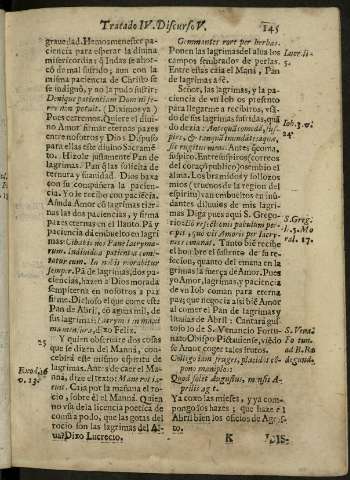 Tratado IV. Discurso V.
145
gravedad. Hemos menester pa-
ciencia para esperar la diuina
misericordia: q̃ Iudas se ahor-
cò de mal sufrido, aun con la
misma paciencia de Christo se
se indignò, y no la pudo sufrir:
Denique patientiam Domini fer-
re non potuit. (Diximos ya)
Pues entremos. Quiere el diui-
no Amor firmar eternas pazes
entre nosotros y Dios: Dispuso
para ella este diuino Sacramẽ-
to. Hizole juntamente Pan de
lagrimas. Pan q̃ las solicita de
ternura y suauidad. Dios baxa
con su compañera la pacien-
cia. Yo le recibo con paciẽcia.
Añada Amor cõ lagrimas tier-
nas las dos paciencias, y firma
pazes eternas en el llanto. Pã y
paciencia dà embuelto en lagri-
mas: Cibabis nos Pane lacryma-
rum. indiuidua patientia comi-
tatur eum. In nobis morabitur
semper. Pã de lagrimas, dos pa-
ciencias, hazen a Dios morada
sempiterna en nosotros a paz
firme. Dichoso el que come este
Pan de Abril, cõ agua mil, de
sus lagrimas:
dixo Felix.
25
Y quien obseruare dos cosas
que se dizen del Mannà, con-
cebirà este mismo espiritu de
lagrimas. Antes de caer el Man-
nà, dize el texto: Mane ros ia-
cuit. Caia por la mañana el ro-
cio, sobre èl el Mannà. Quien
no vsa de la licencia poetica de
comũ a podo, que las gotas del
rocio son las lagrimas del Al-
ua? Dixo Lucrecio.
Exod. 16
v. 13.
Gemmantes rore per herbas.
Ponen las lagrimas del alua los
campos sembrados de perlas.
Entre estas caìa el Manà, Pan
de lagrimas a fe.
Señor, las lagrimas, y la pa-
ciencia de vn Iob os presento
para llegarme a recibiros, vsã-
do de sus lagrimas sufridas, quã
do dezia: Antequã comedã, sus-
piro, & tamquã inundãtes aquæ,
sic rugitus meus. Antes q̃ coma,
suspiro. Entre suspiros (correos
del coraçõ publico) os embio el
alma. Los bramidos y sollozos
mios (truenos de la region del
espiritu) van embueltos en inũ-
dantes diluuios de mis lagri-
mas. Diga pues aqui S. Grego-
rio:
Tanto biẽ recibe
el hombre del sufrento de su re-
focicio, quanto del emana en la
grimas la fuerça de Amor. Pues
yo Amor, lagrimas y paciencia
de vn Iob coman para eterna
paz; que negocia assi biẽ Amor
al comer el Pan de lagrimas y
lluuia de Abril: Cantarà gus-
toso lo de S. Venancio Fortu-
nato Obispo Pictauiense, viẽdo
se Amor coger tales frutos.
Colligo iam fruges, placidi cõ-
pono manipulos:
Quod solet Augustus, mensis A-
prilis agit.
Ya cozo las mieses, y ya com-
pongo los hazes; que haze el
Abril bien los oficios de Agos-
to.
Lucr. li.
5.
Iob. 3. v.
24.
S. Greg.
l. 5. Mo
ral. 17.
S. Venã.
Fortu
nad
K